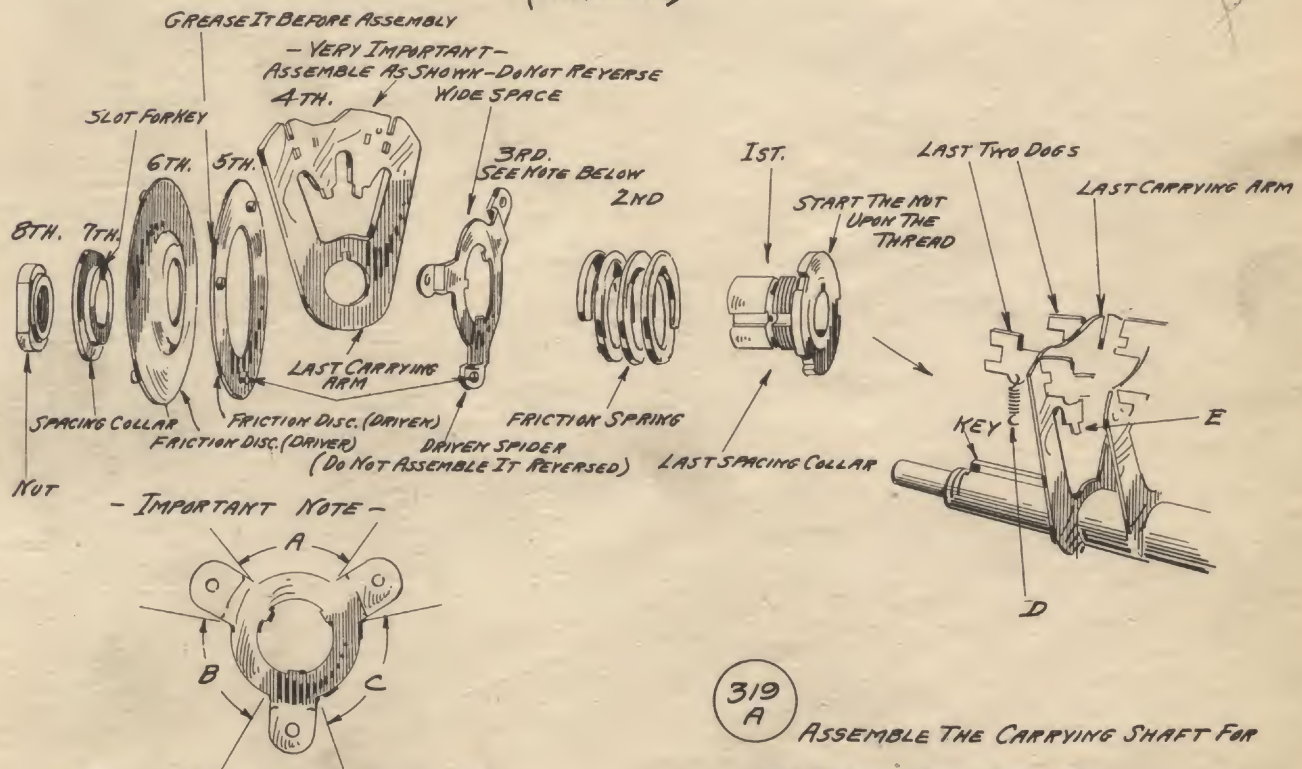 GREASE IT BEFORE ASSEMBLY
- VERY IMPORTANT -
ASSEMBLE AS SHOWN - DO NOT REVERSE
4TH.
WIDE SPACE
SLOT FOR KEY
6TH.
5TH.
3RD.
SEE NOTE BELOW
2ND
1ST.
LAST TWO DOGS
LAST CARRYING ARM
START THE NUT
UPON THE
THREAD
8TH.
7TH.
LAST CARRYING
ARM
SPACING COLLAR
FRICTION DISC. (DRIVEN)
FRICTION DISC. (DRIVER)
DRIVEN SPIDER
(DO NOT ASSEMBLE IT REVERSED)
FRICTION SPRING
LAST SPACING COLLAR
KEY
E
NUT
D
- IMPORTANT NOTE -
A
B
C
319
A
ASSEMBLE THE CARRYING SHAFT FOR